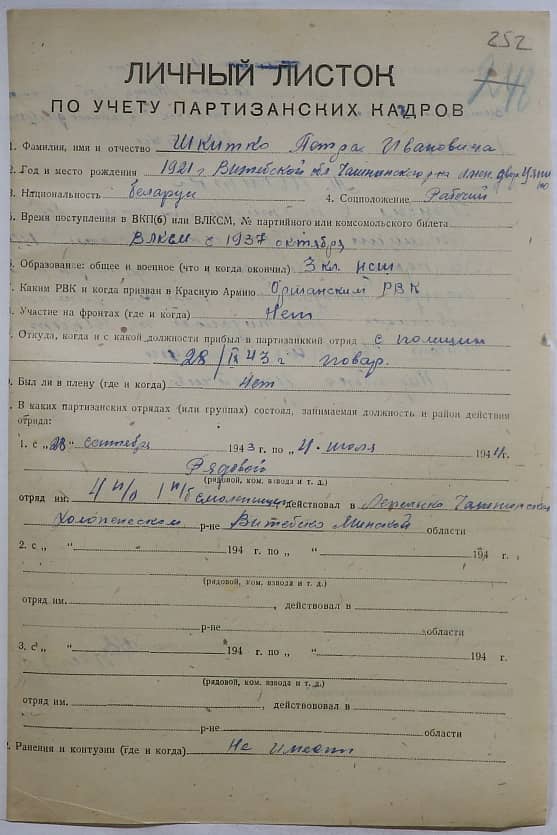 252
ЛИЧНЫЙ ЛИСТОК
ПО УЧЕТУ ПАРТИЗАНСКИХ КАДРОВ
1. Фамилия, имя и отчество Шкитко Петра Ивановича
2. Год и место рождения 1921 г. Витебской обл Чашникского р-на
3. Национальность беларус 4. Соцположение Рабочий
5. Время поступления в ВКП(б) или ВЛКСМ, № партийного или комсомольского билета
ВЛКСМ с 1937 октября
Образование: общее и военное (что и когда окончил) 3 кл. нсш
Каким РВК и когда призван в Красную Армию Оршанским РВК
Участие на фронтах (где и когда) Нет
Откуда, когда и с какой должности прибыл в партизанский отряд с полиции
28/IX 43 г повар.
Был ли в плену (где и когда) нет
В каких партизанских отрядах (или группах) состоял, занимаемая должность и район действия
отряда:
1. с „28" сентября 1943 г. по „4" июля 1944 г.
Рядовой
(рядовой, ком. взвода и т. д.)
отряд им. 4 п/о 1 п/б действовал в
р-не Витебско Минской области
2. с „ " 194 г. по „ " 194 г.
(рядовой, ком. взвода и т. д.)
отряд им. , действовал в
р-не области
3. с „ " 194 г. по „ " 194 г.
(рядовой, ком. взвода и т. д.)
отряд им. , действововал в
р-не области
Ранения и контузии (где и когда) Не имеет